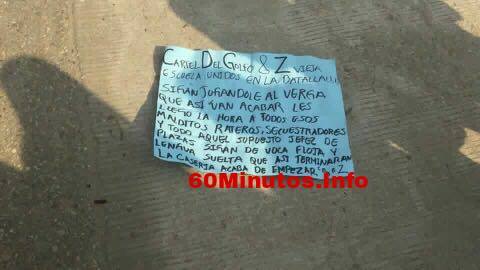 CARTEL DEL GOLFO & Z VIEJA
ESCUELA UNIDOS EN LA
SIGAN JUGANDOLE AL VERGA
QUE ASI VAN ACABAR LES
LLEGO LA HORA A TODOS ESOS
MALDITOS RATEROS, SECUESTRADORES
Y TODO AQUEL SUPUESTO JEFEZ DE
PLAZAS SIGAN DE VOCA FLOJA Y
LENGUA SUELTA QUE ASI TERMINARAN
LA CASERIA ACABA DE EMPEZAR.
60Minutos.Info